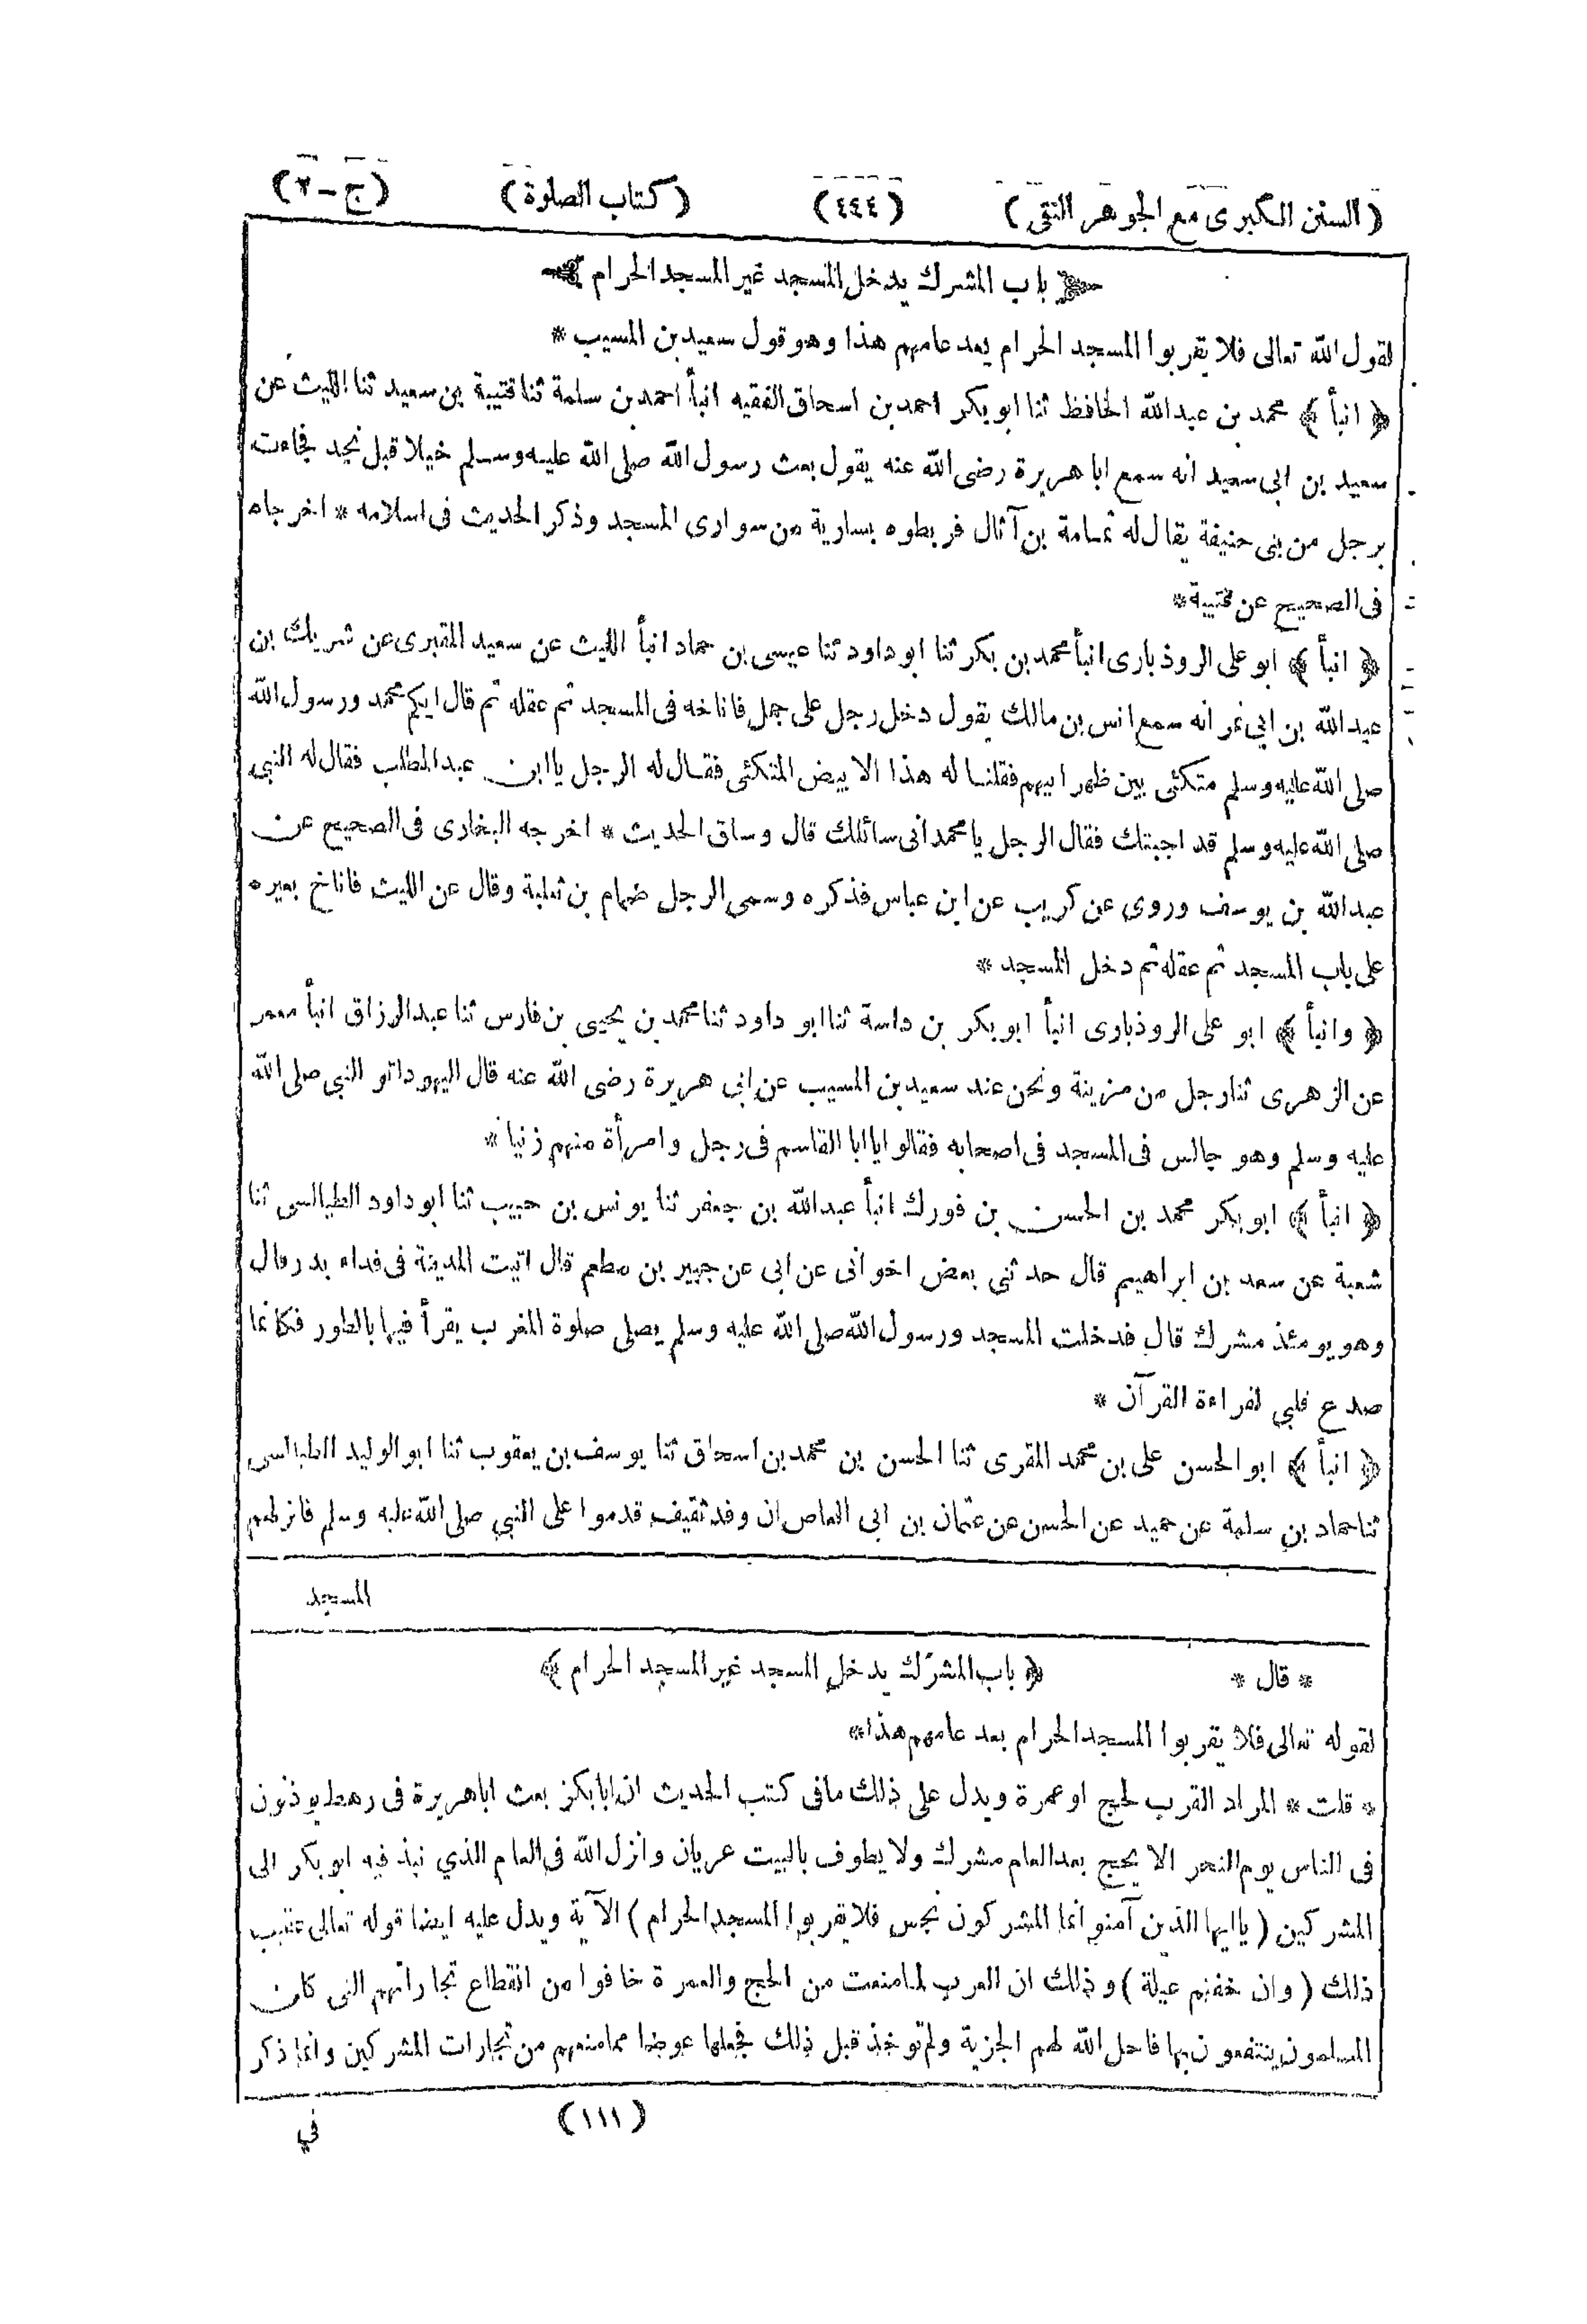 (السنن الكبرى مع الجوهر النقى) (٤٤٤) (كتاب الصلوة) (ج-٢)
باب المشرك يدخل المسجد غير المسجد الحرام
لقول الله تعالى فلا يقربوا المسجد الحرام بعد عامهم هذا وهو قول سعيد بن المسيب *
﴿ انبأ ﴾ محمد بن عبد الله الحافظ ثنا ابو بكر احمد بن اسحاق الفقيه انبأ احمد بن سلمة ثنا قتيبة بن سعيد ثنا الليث عن
سعيد بن ابى سعيد انه سمع ابا هريرة رضى الله عنه يقول بعث رسول الله صلى الله عليه وسلم خيلا قبل نجد فجاءت
برجل من بنى حنيفة يقال له ثمامة بن آثال فربطوه بسارية من سوارى المسجد وذكر الحديث فى اسلامه * اخرجاه
فى الصحيح عن قتيبة *
﴿ انبأ ﴾ ابو على الروذبارى انبأ محمد بن بكر ثنا ابو داود ثنا عيسى بن حماد انبأ الليث عن سعيد المقبرى عن شريك بن
عبد الله بن ابى نمر انه سمع انس بن مالك يقول دخل رجل على جمل فاناخه فى المسجد ثم عقله ثم قال ايكم محمد ورسول الله
صلى الله عليه وسلم متكئى بين ظهرانيهم فقلنا له هذا الابيض المتكئى فقال له الرجل يا ابن عبد المطلب فقال له النبى
صلى الله عليه وسلم قد اجبتك فقال الرجل يا محمد انى سائلك قال وساق الحديث * اخرجه البخارى فى الصحيح عن
عبد الله بن يوسف وروى عن كريب عن ابن عباس فذكره وسمى الرجل ضمام بن ثعلبة وقال عن الليث فاناخ بعيره
على باب المسجد ثم عقله ثم دخل المسجد *
﴿ وانبأ ﴾ ابو على الروذبارى انبأ ابو بكر بن داسة ثنا ابو داود ثنا محمد بن يحيى بن فارس ثنا عبد الرزاق انبأ معمر
عن الزهرى ثنا رجل من مزينة ونحن عند سعيد بن المسيب عن ابى هريرة رضى الله عنه قال اليهود اتو النبي صلى الله
عليه وسلم وهو جالس فى المسجد فى اصحابه فقالوا يا ابا القاسم فى رجل وامرأة منهم زنيا *
﴿ انبأ ﴾ ابو بكر محمد بن الحسن بن فورك انبأ عبد الله بن جعفر ثنا يونس بن حبيب ثنا ابو داود الطيالسى ثنا
شعبة عن سعد بن ابراهيم قال حدثنى بعض اخوانى عن ابى عن جبير بن مطعم قال اتيت المدينة فى فداء بدر قال
وهو يومئذ مشرك قال فدخلت المسجد ورسول الله صلى الله عليه وسلم يصلى صلوة المغرب يقرأ فيها بالطور فكانما
صدع قلبي لقراءة القرآن *
﴿ انبأ ﴾ ابو الحسن على بن محمد المقرى ثنا الحسن بن محمد بن اسحاق ثنا يوسف بن يعقوب ثنا ابو الوليد الطيالسى
ثنا حماد بن سلمة عن حميد عن الحسن عن عثمان بن ابى العاص ان وفد ثقيف قدموا على النبي صلى الله عليه وسلم فانزلهم
المسجد
* قال * ﴿ باب المشرك يدخل المسجد غير المسجد الحرام ﴾
لقوله تعالى فلا يقربوا المسجد الحرام بعد عامهم هذا *
* قلت * المراد القرب لحج او عمرة ويدل على ذلك ما فى كتب الحديث ان ابا بكر بعث ابا هريرة فى رهط يوذنون
فى الناس يوم النحر الا يحج بعد العام مشرك ولا يطوف بالبيت عريان وانزل الله فى العام الذي نبذ فيه ابو بكر الى
المشركين (يا ايها الذين آمنوا انما المشركون نجس فلا يقربوا المسجد الحرام) الآية ويدل عليه ايضا قوله تعالى عقيب
ذلك (وان خفتم عيلة) وذلك ان العرب لما منعت من الحج والعمرة خافوا من انقطاع تجاراتهم التى كان
المسلمون ينتفعون بها فاحل الله لهم الجزية ولم توخذ قبل ذلك فجعلها عوضا مما منعهم من تجارات المشركين وانما ذكر
(١١١) في